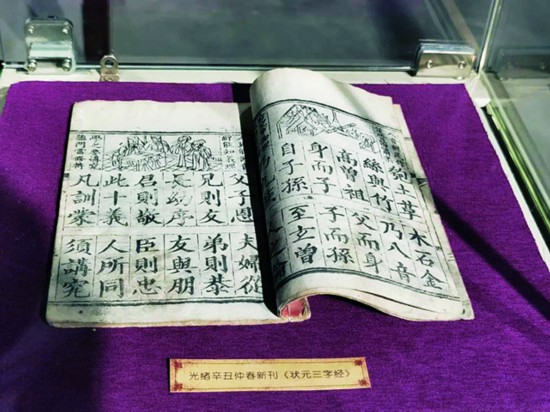 匏土革 木石金
絲與竹 乃八音
高曾祖 父而身
身而子 子而孫
自子孫 至玄曾
父子恩 夫婦從
兄則友 弟則恭
長幼序 友與朋
君則敬 臣則忠
此十義 人所同
凡訓蒙 須講究
光绪辛丑仲春新刊《状元三字经》